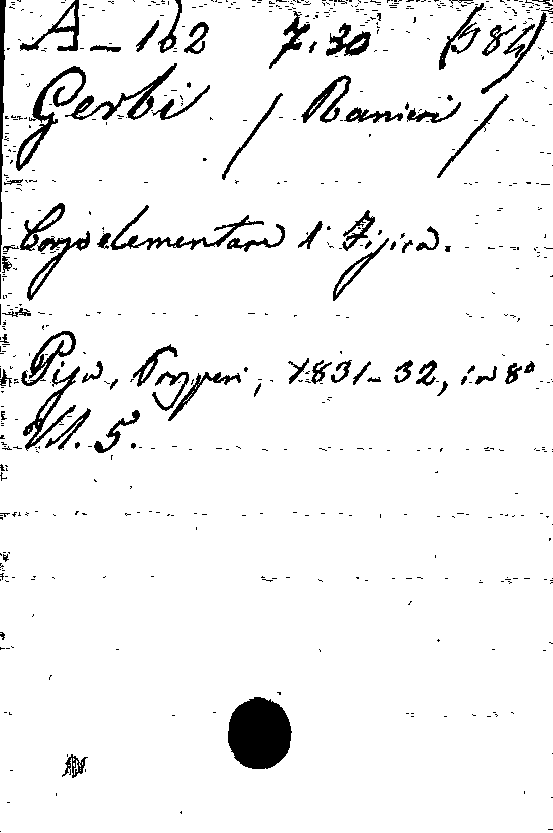 A-102 7.30 (584)
Gerbi / Ranieri /
Corso elementare d' Fisica.
Pisa, Prosperi, 1831-32, in 8°
Vol. 5.